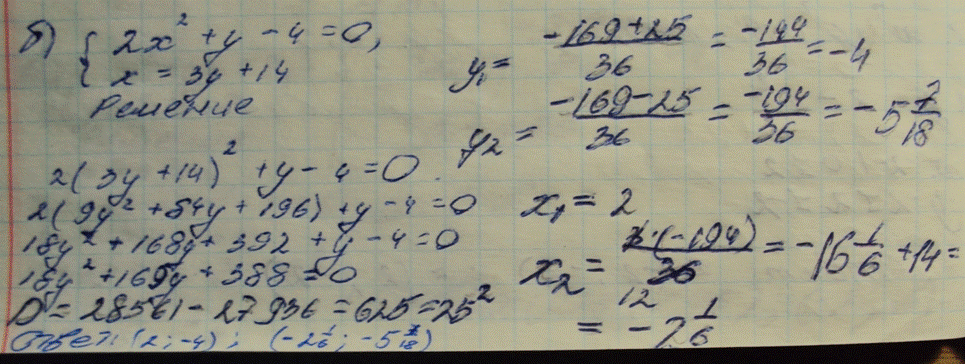 б) { 2x² + y - 4 = 0,
x = 3y + 14
Решение
2(3y + 14)² + y - 4 = 0.
2(9y² + 84y + 196) + y - 4 = 0
18y² + 168y + 392 + y - 4 = 0
18y² + 169y + 388 = 0
D = 28561 - 27936 = 625 = 25²
Ответ: (2; -4); (-2 1/6; -5 7/18)
y₁ = (-169 + 25)/36 = -144/36 = -4
y₂ = (-169 - 25)/36 = -194/36 = -5 7/18
x₁ = 2
x₂ = 3·(-194)/36 = -16 1/6 + 14 =
12
= -2 1/6